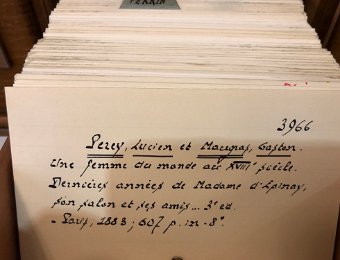 PERRIN
3966
Perey, Lucien et Maugras, Gaston.
Une femme du monde au XVIIIe siècle.
Dernières années de Madame d'Epinay,
son salon et ses amis... 3e ed.
- Paris, 1883; 607 p. in-8°.